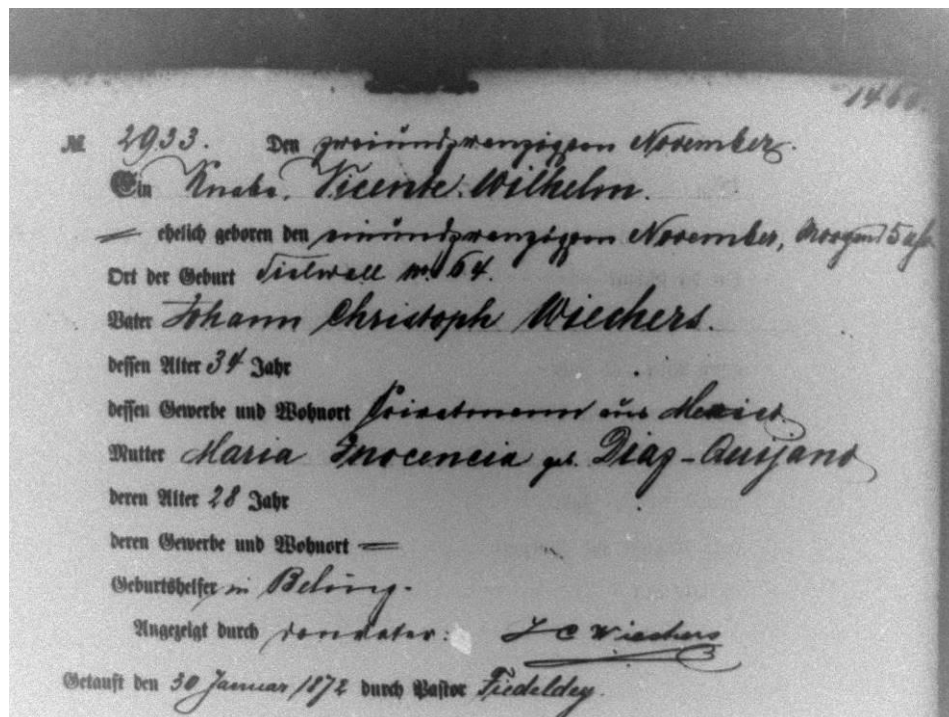 1466.
№ 2933. Den zweiundzwanzigsten November.
Ein Knabe, Vicente Wilhelm.
= ehelich geboren den einundzwanzigsten November, Morgens 5 Uhr
Ort der Geburt Tielwall nr. 64.
Vater Johann Christoph Wiechers.
dessen Alter 34 Jahr
dessen Gewerbe und Wohnort Privatmann aus Mexico.
Mutter Maria Inocencia geb. Diaz-Quijano
deren Alter 28 Jahr
deren Gewerbe und Wohnort =
Geburtshelfer in Behing.
Angezeigt durch den Vater: J C Wiechers
Getauft den 30 Januar 1872 durch Pastor Fiedeldey.